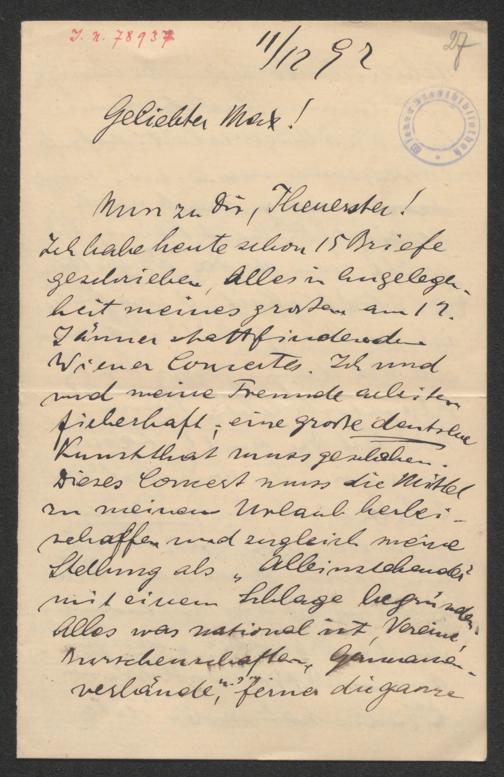 I. n. 78937
11/12 92
27
Wiener Stadtbibliothek
Geliebter Max!
Nun zu Dir, Theuerster!
Ich habe heute schon 15 Briefe
geschrieben, Alles in Angelegen-
heit meines großen am 12.
Jänner stattfindenden
Wiener Concertes. Ich und
und meine Freunde arbeiten
fieberhaft; eine große deutsche
Kunstthat muss geschehen.
Dieses Concert muss die Mittel
zu meinem Urlaub herbei-
schaffen und zugleich meine
Stellung als „Alleinstehender"
mit einem Schlage begründen.
Alles was national ist, Vereine,
Burschenschaften, Germanen-
verbände, ferner die ganze